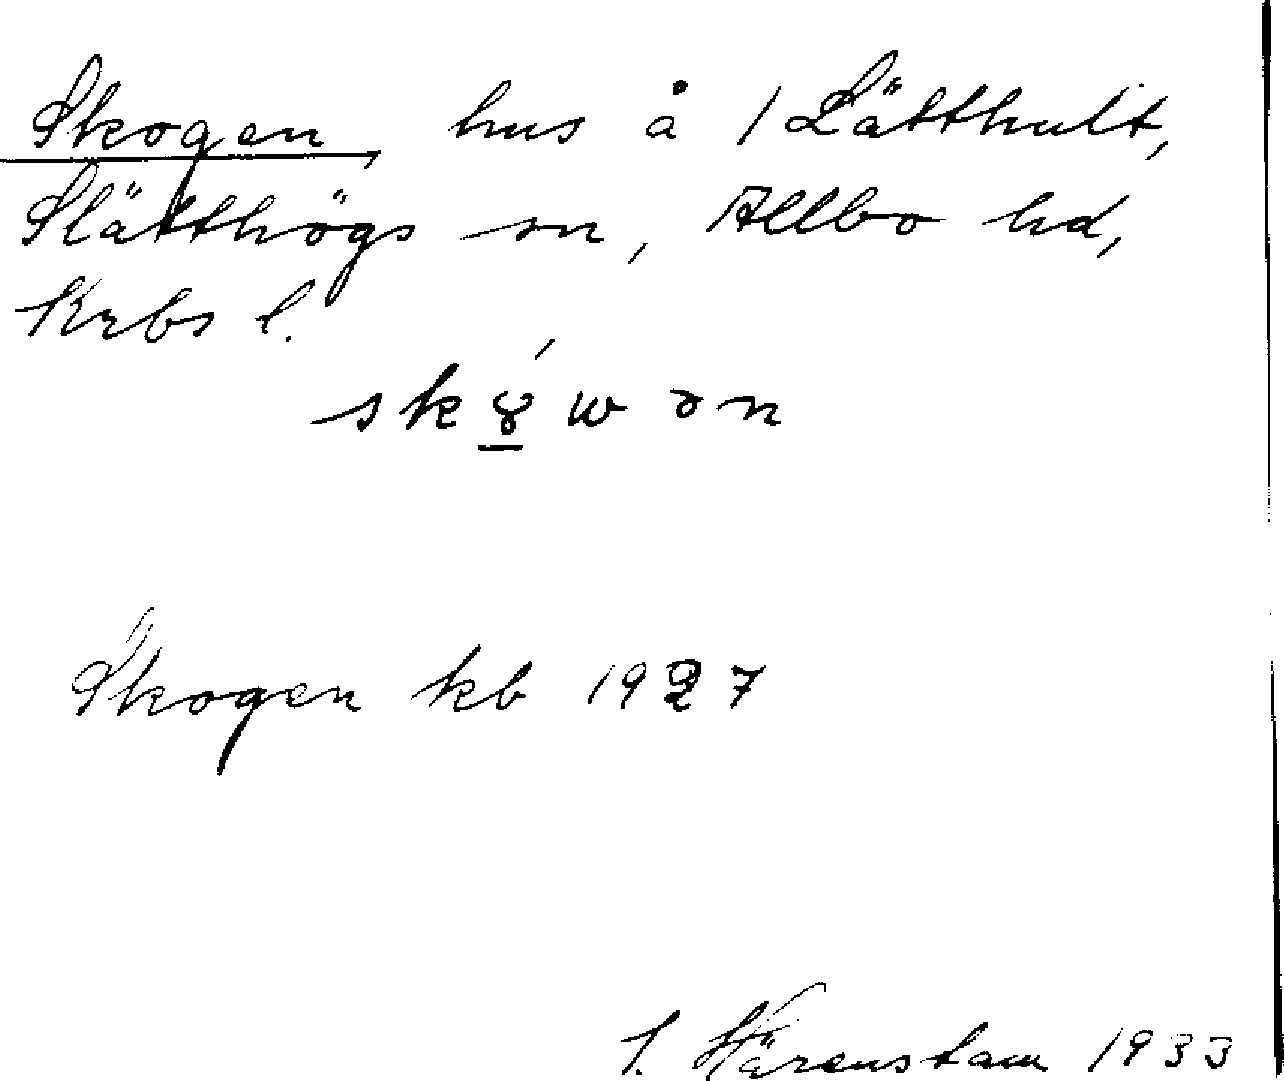 Skogen, hus å 1 Lätthult,
Slätthögs sn, Allbo hd,
Krbs l.
skɣ́wən
Skogen kb 1927
S. Härenstam 1933